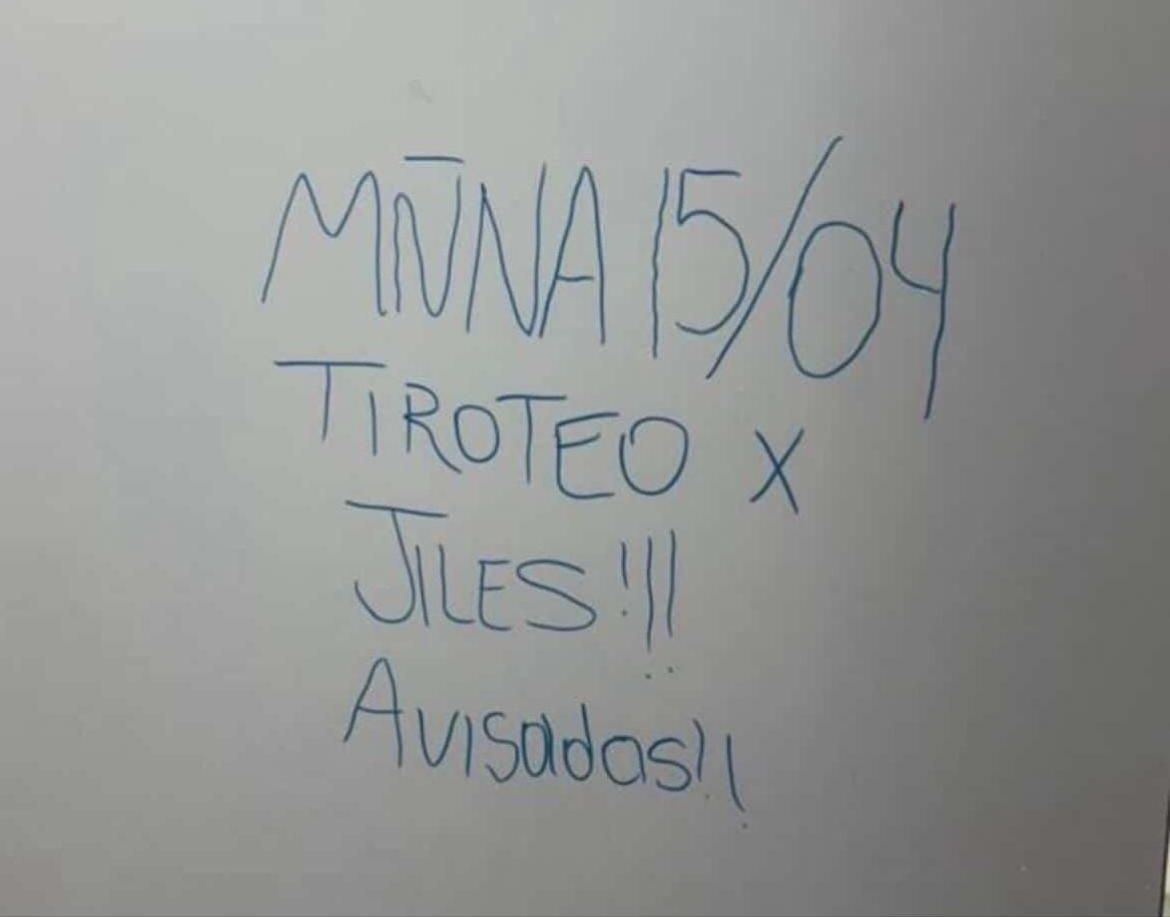 MÑNA 15/04
TIROTEO X
JILES!!!
AVISadas!!